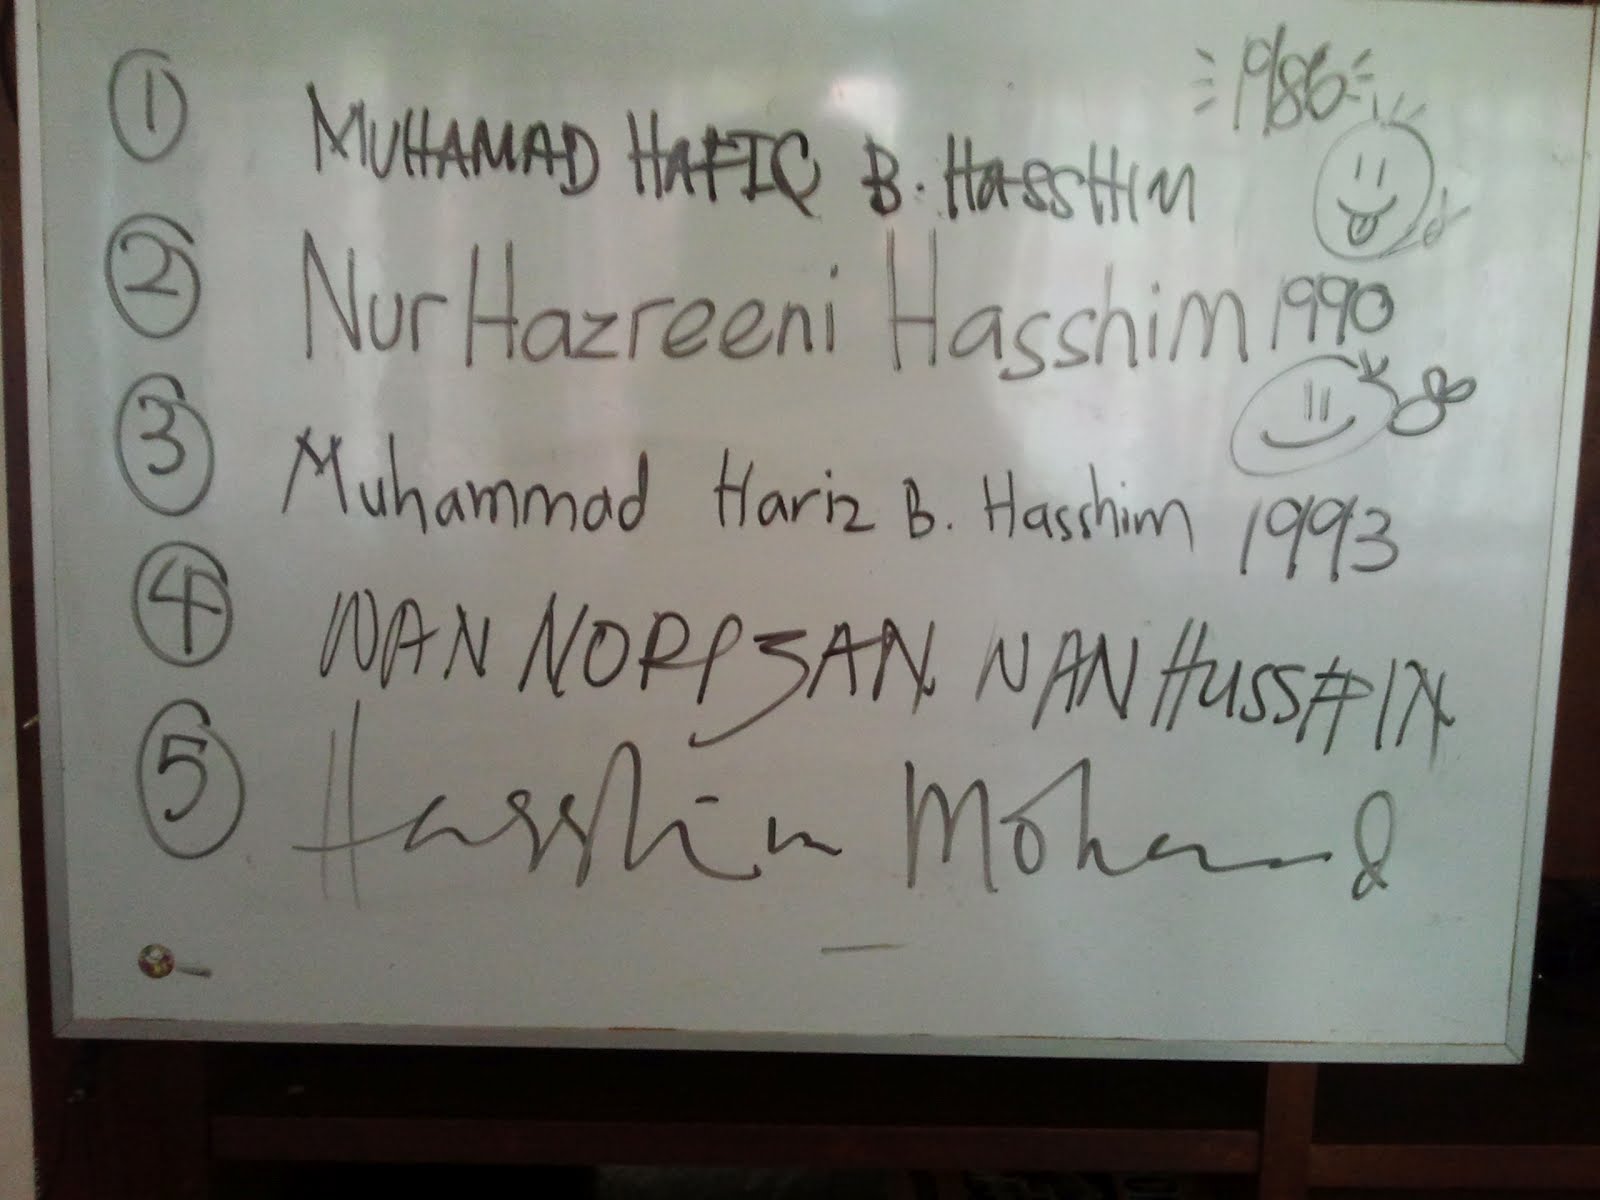 1 MUHAMAD HAFIQ B. HASSHIM 1986
2 Nur Hazreeni Hasshim 1990
3 Muhammad Hariz B. Hasshim 1993
4 WAN NORIZAN WAN HUSSEIN
5 Hasshim Mohamad